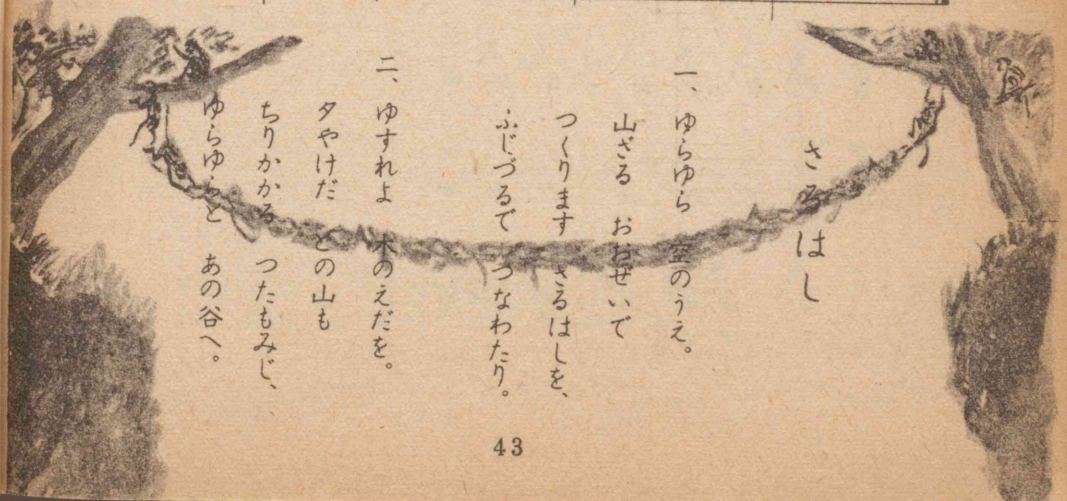 さるはし
一、ゆらゆら 空のうえ。
山ざる おおぜいで
つくります さるはしを、
ふじづるで つなわたり。
二、ゆすれよ 木のえだを。
夕やけだ どの山も
ちりかかる つたもみじ、
ゆらゆらと あの谷へ。
43